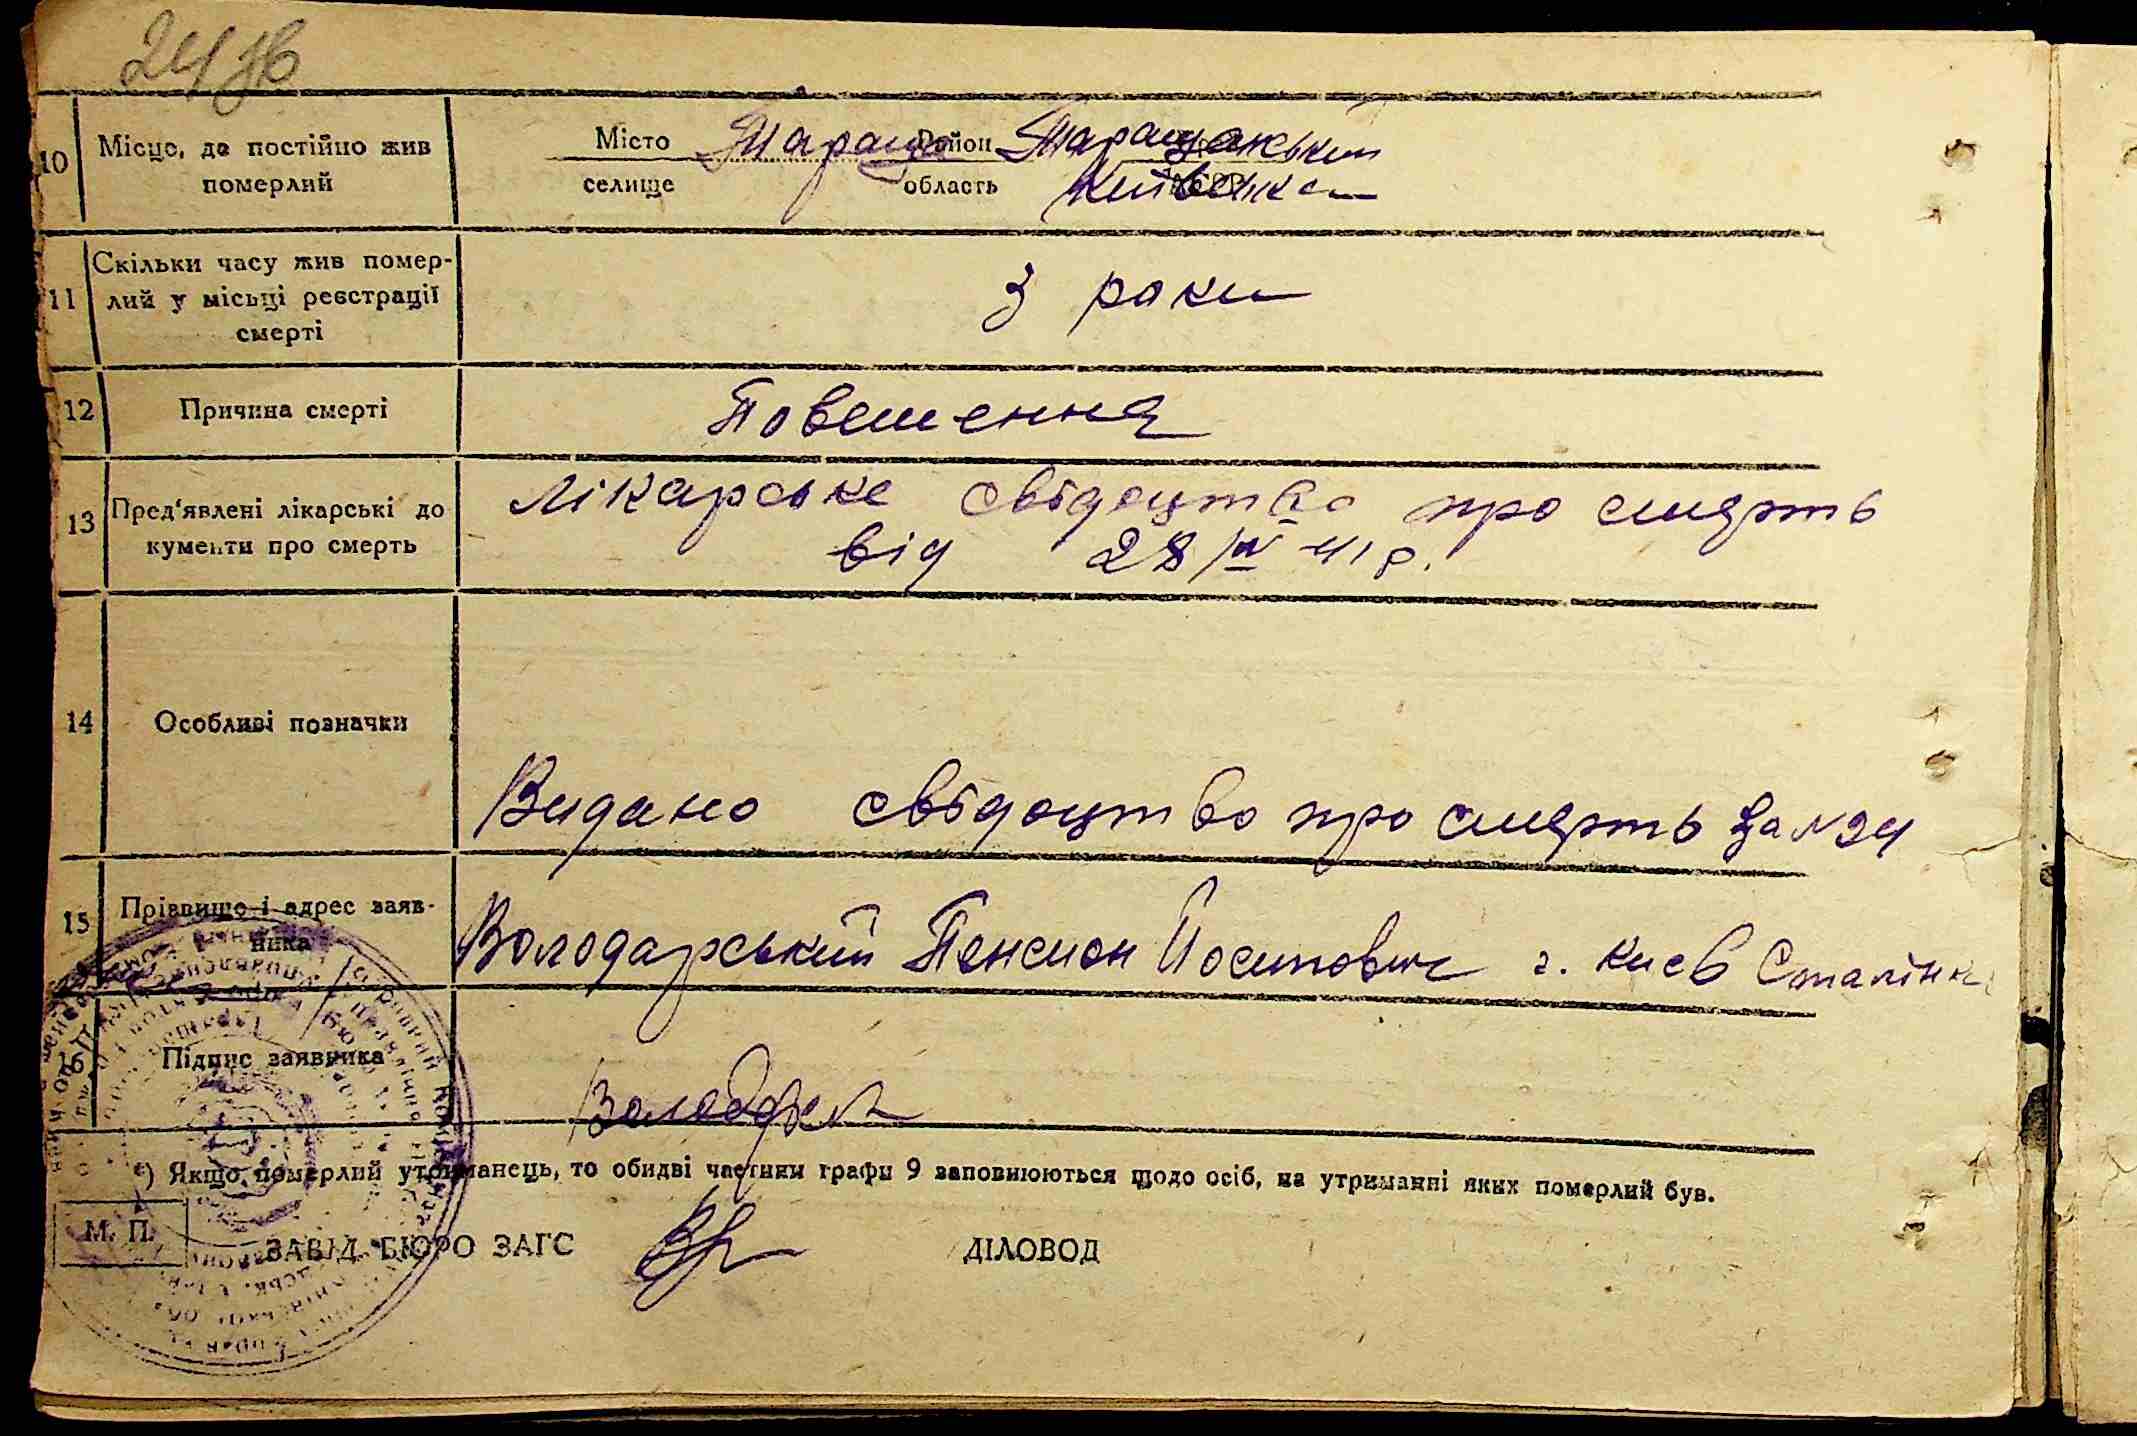 24
10 Місце, де постійно жив Місто Тараща Район Таращанський
померлий селище область Київська
Скільки часу жив помер-
11 лий у місьці реєстрації 3 роки
смерті
12 Причина смерті Повешення
13 Пред'явлені лікарські до Лікарське свідоцтво про смерть
кументи про смерть від 28/IV 41 р.
14 Особливі позначки
Видано свідоцтво про смерть за №24
15 Прізвище і адрес заяв-
ника Володарський Пенсион Йосипович г. Киев Сталінка
16 Підпис заявника
*) Якщо померлий утриманець, то обидві частини графи 9 заповнюються щодо осіб, на утриманні яких померлий був.
М. П.
ЗАВІД. БЮРО ЗАГС ДІЛОВОД